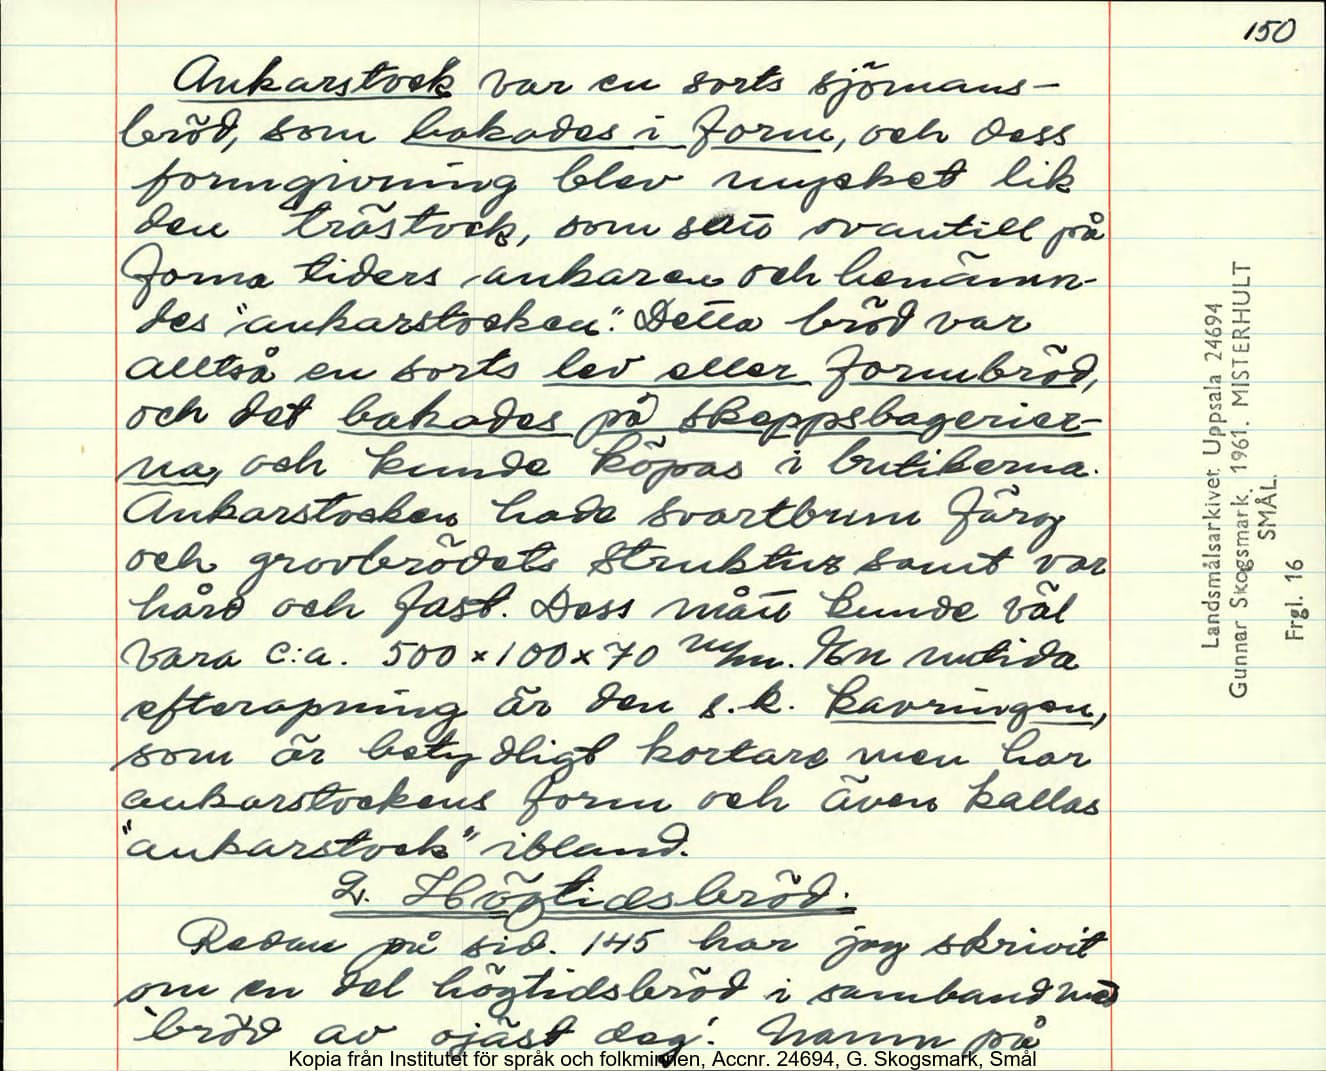 150
Ankarstock var en sorts sjömans-
bröd, som bakades i form, och dess
formgivning blev mycket lik
den trästock, som satt ovantill på
forna tiders ankaren och benämn-
des "ankarstocken". Detta bröd var
alltså en sorts lev eller formbröd,
och det bakades på skeppsbagerier-
na, och kunde köpas i butikerna.
Ankarstocken hade svartbrun färg
och grovbrödets struktur samt var
hård och fast. Dess mått kunde väl
vara c:a. 500 x 100 x 70 m/m. En nutida
efterapning är den s.k. kavringen,
som är betydligt kortare men har
ankarstockens form och även kallas
"ankarstock" ibland.
2. Högtidsbröd.
Redan på sid. 145 har jag skrivit
om en del högtidsbröd i samband med
"bröd av ojäst deg". Namn på
Landsmålsarkivet. Uppsala 24694
Gunnar Skogsmark. 1961. MISTERHULT
SMÅL.
Frgl. 16
Kopia från Institutet för språk och folkminnen, Accnr. 24694, G. Skogsmark, Smål